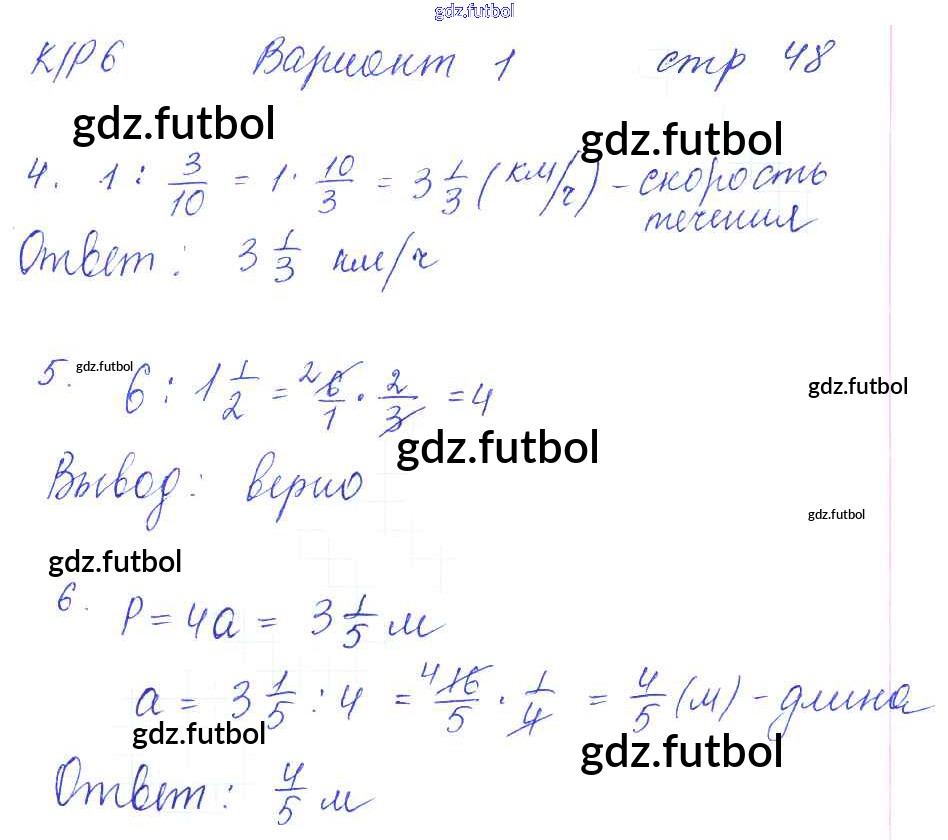 gdz.futbol
К/Р 6 Вариант 1 стр 48
gdz.futbol
gdz.futbol
4. 1 : 3/10 = 1 · 10/3 = 3 1/3 (км/ч) - скорость
течения
Ответ: 3 1/3 км/ч
gdz.futbol
5. 6 : 1 1/2 = 2 6/1 · 2/3 = 4
gdz.futbol
gdz.futbol
Вывод: верно
gdz.futbol
gdz.futbol
6. P = 4a = 3 1/5 м
a = 3 1/5 : 4 = 4 16/5 · 1/4 = 4/5 (м) - длина
gdz.futbol
gdz.futbol
Ответ: 4/5 м